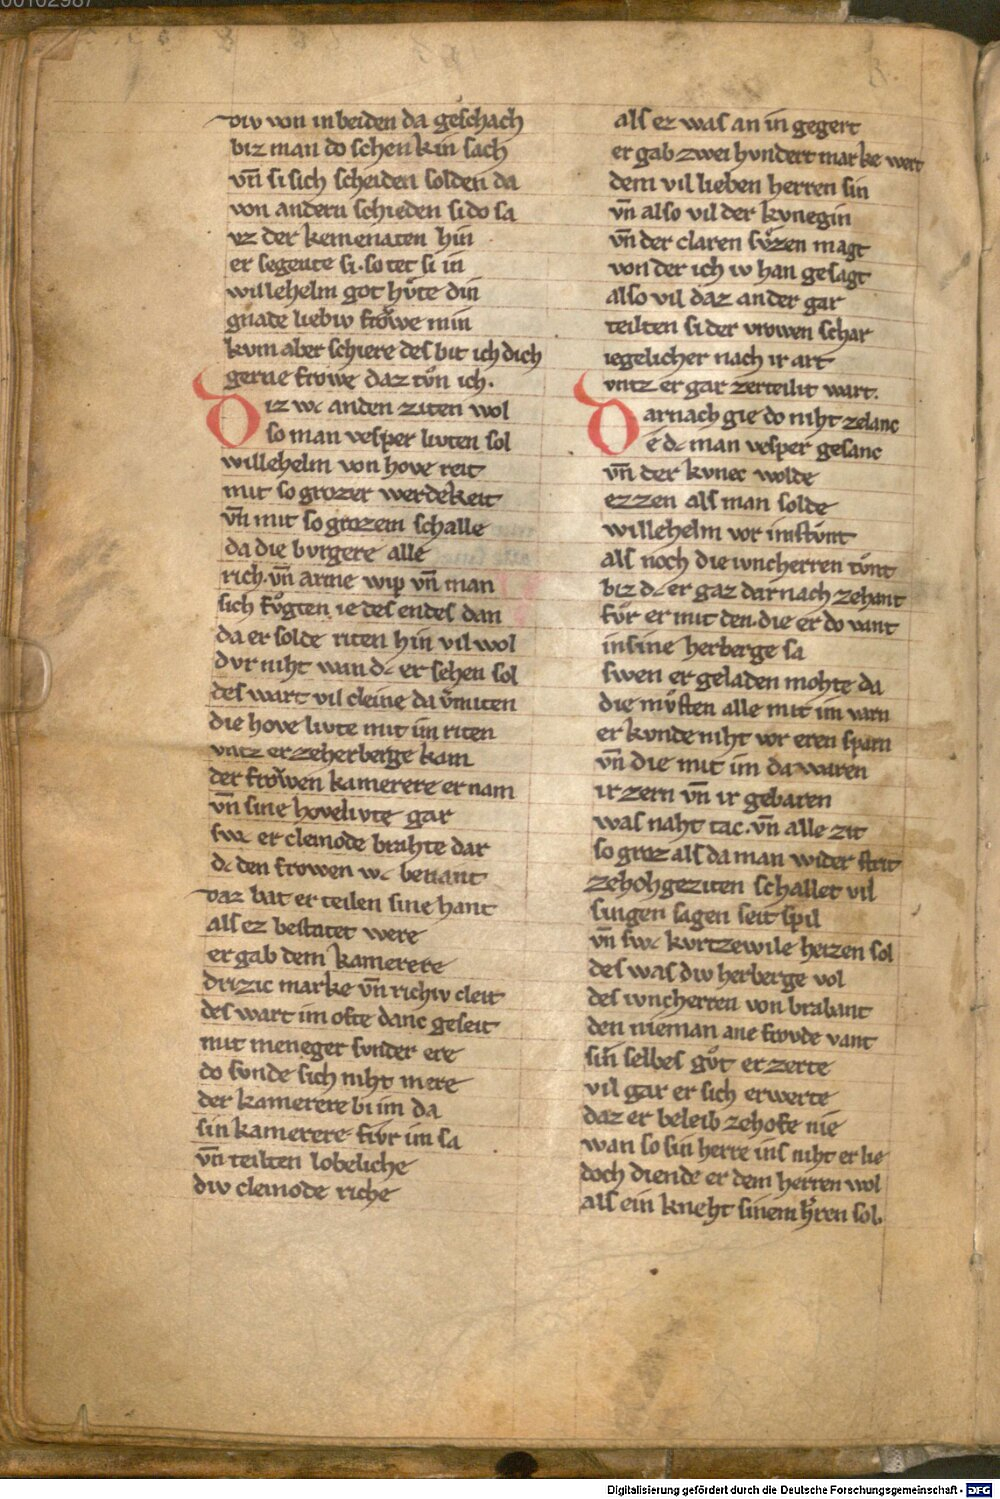 00102987
div von in beiden da geschach
biz man do schenkin sach
vn̄ si sich scheiden solden da
von andern schieden si do sa
vz der kemenaten hin
er segente si · so tet si in
willehelm got hůte din
gnade liebiv frǒwe min
kvm aber schiere des bit ich dich
gerne frowe daz tůn ich ·
Diz wc an den ziten wol
so man vesper livten sol
willehelm von hove reit
mit so grozer werdekeit
vn̄ mit so grozem schalle
da die bvrgere alle
rich · vn̄ arme wip vn̄ man
sich fůgten ie des endes dan
da er solde riten hin vil wol
dvr niht wan dc er sehen sol
des wart vil cleine da v̄miten
die hove livte mit im riten
vntz er zeherberge kam
der frǒwen kamerere er nam
vn̄ sine hovelivte gar
swc er cleinode brahte dar
dc den frowen wc benant
daz bat er teilen sine hant
als ez bestatet were
er gab dem kamerere
drizic marke vn̄ richiv cleit
des wart im ofte danc geseit
mit meneger svnder ere
do svnde sich niht mere
der kamerere bi im da
sin kamerere fivr im sa
vn̄ teilten lobeliche
div cleinode riche
als ez was an in gegert
er gab zwei hvndert marke wert
dem vil lieben herren sin
vn̄ also vil der kvnegin
vn̄ der claren sv̊zen magt
von der ich iv han gesagt
also vil daz ander gar
teilten si der vrowen schar
iegelicher nach ir art
vntz er gar zerteilit wart ·
Darnach gie do niht ze lanc
e dc man vesper gesanc
vn̄ der kvnec wolde
ezzen als man solde
willehelm vor im stv̊nt
als noch die ivncherren tv̊nt
biz dc er gaz dar nach zehant
fv̊r er mit den die er do vant
in sine herberge sa
swen er geladen mohte da
die mv̊sten alle mit im varn
er kvnde niht vor eren sparn
vn̄ die mit im da waren
ir zern vn̄ ir gebaren
was naht tac · vn̄ alle zit
so groz als da man wider strit
zehohgeziten schallet vil
singen sagen seit spil
vn̄ swc kvrtzewile heizen sol
des was div herberge vol
des ivncherren von brabant
den nieman ane frovde vant
sin selbes gv̊t er zerte
vil gar er sich erwerte
daz er beleib zehofe nie
wan so sin herre ins niht erlie
doch diende er dem herren wol
als ein kneht sinem h̄ren sol.
Digitalisierung gefördert durch die Deutsche Forschungsgemeinschaft - DFG